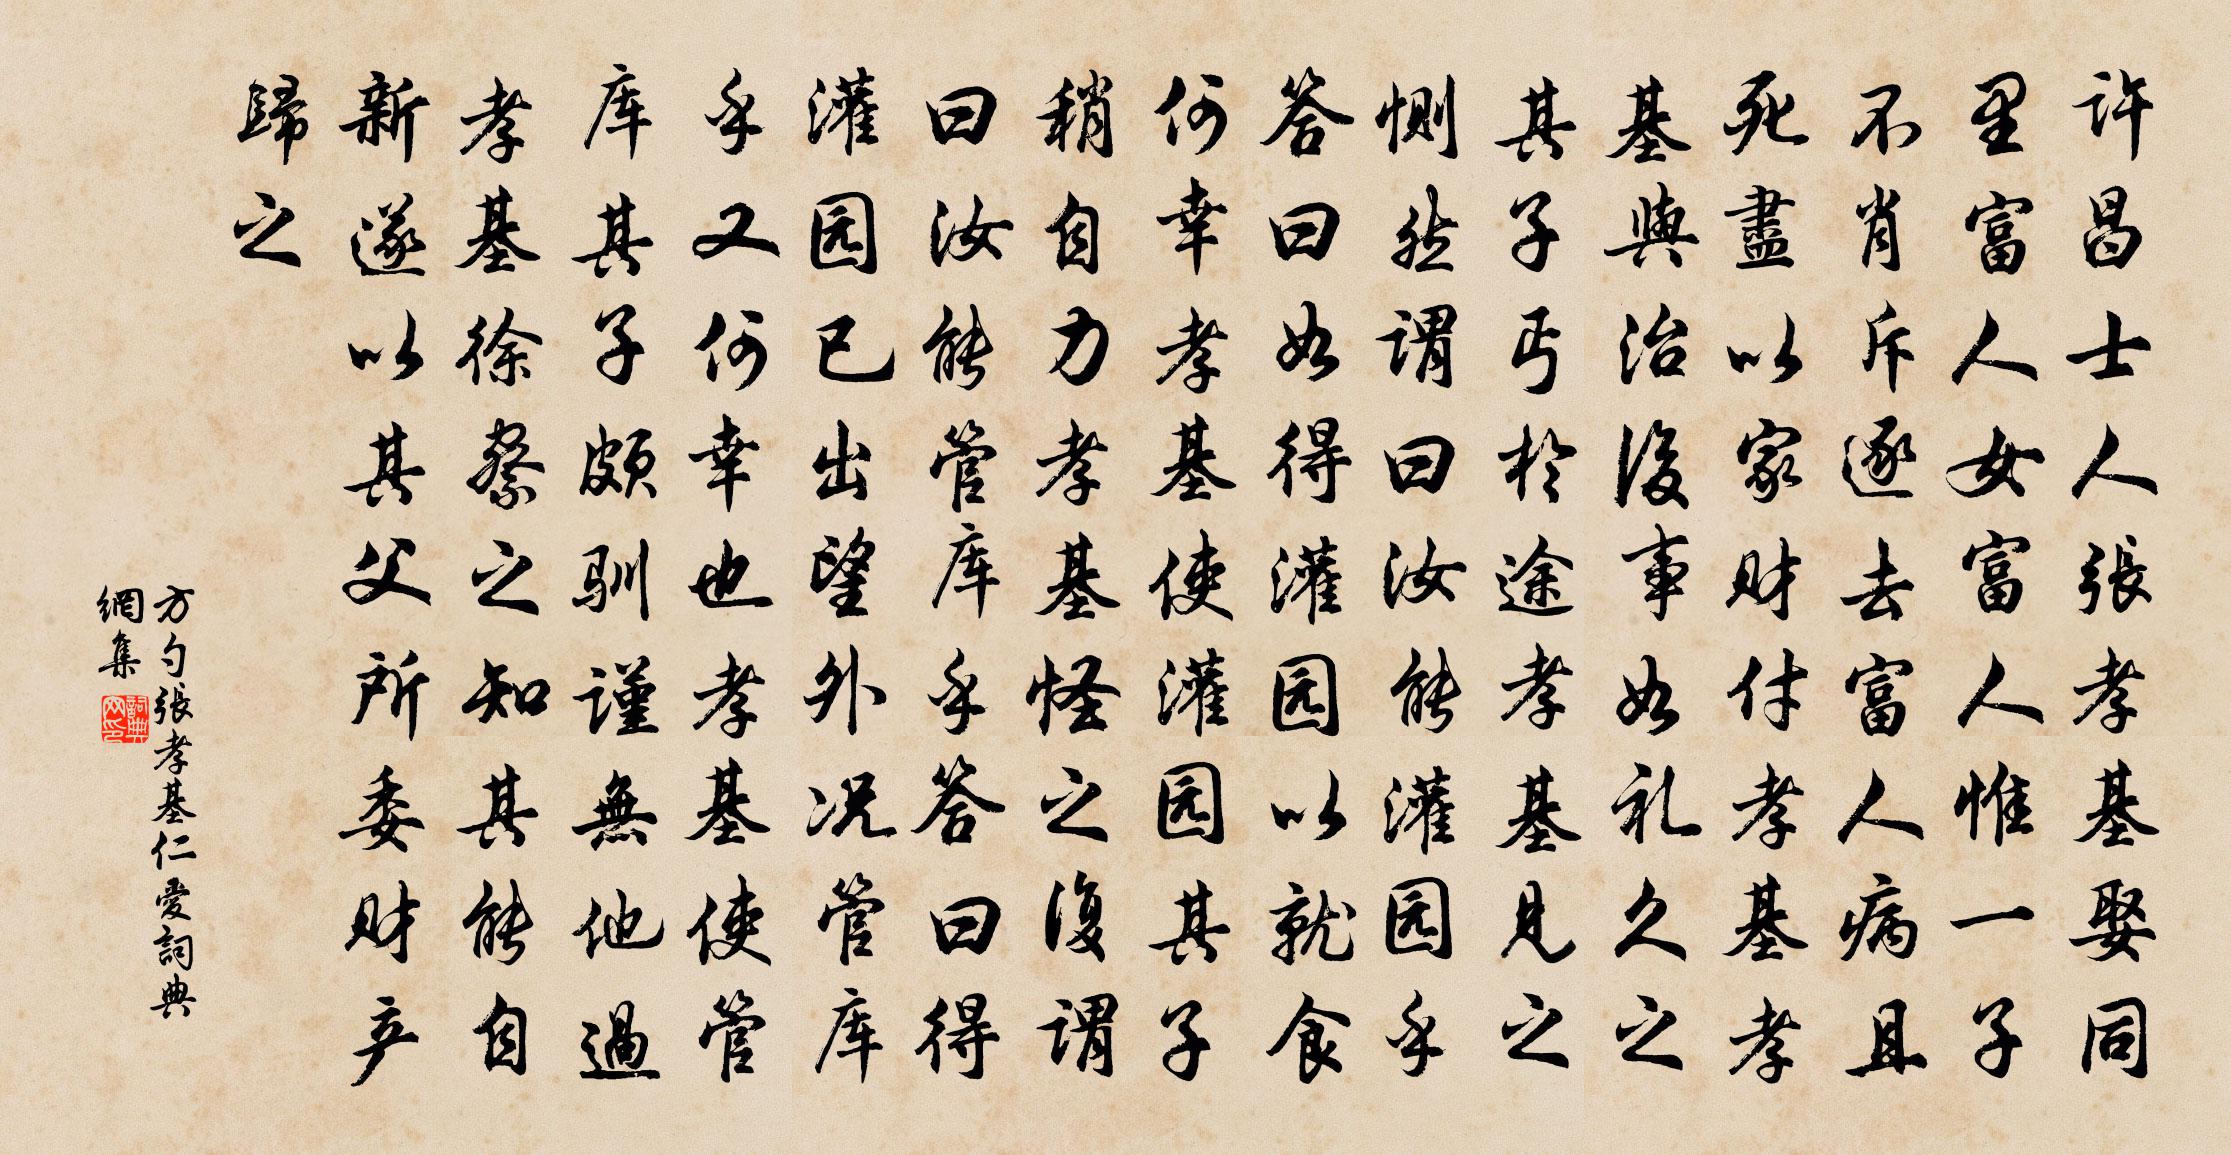 許昌士人張孝基娶同
里富人女富人惟一子
不肖斥逐去富人病且
死盡以家财付孝基孝
基與治後事如礼久之
其子丐於途孝基見之
惻然謂曰汝能灌园乎
答曰如得灌园以就食
何幸孝基使灌园其子
稍自力孝基怪之復謂
曰汝能管库乎答曰得
灌园已出望外况管库
乎又何幸也孝基使管
库其子頗驯謹無他過
孝基徐察之知其能自
新遂以其父所委财产
歸之
方勺張孝基仁愛詞典
網集
詞典网印